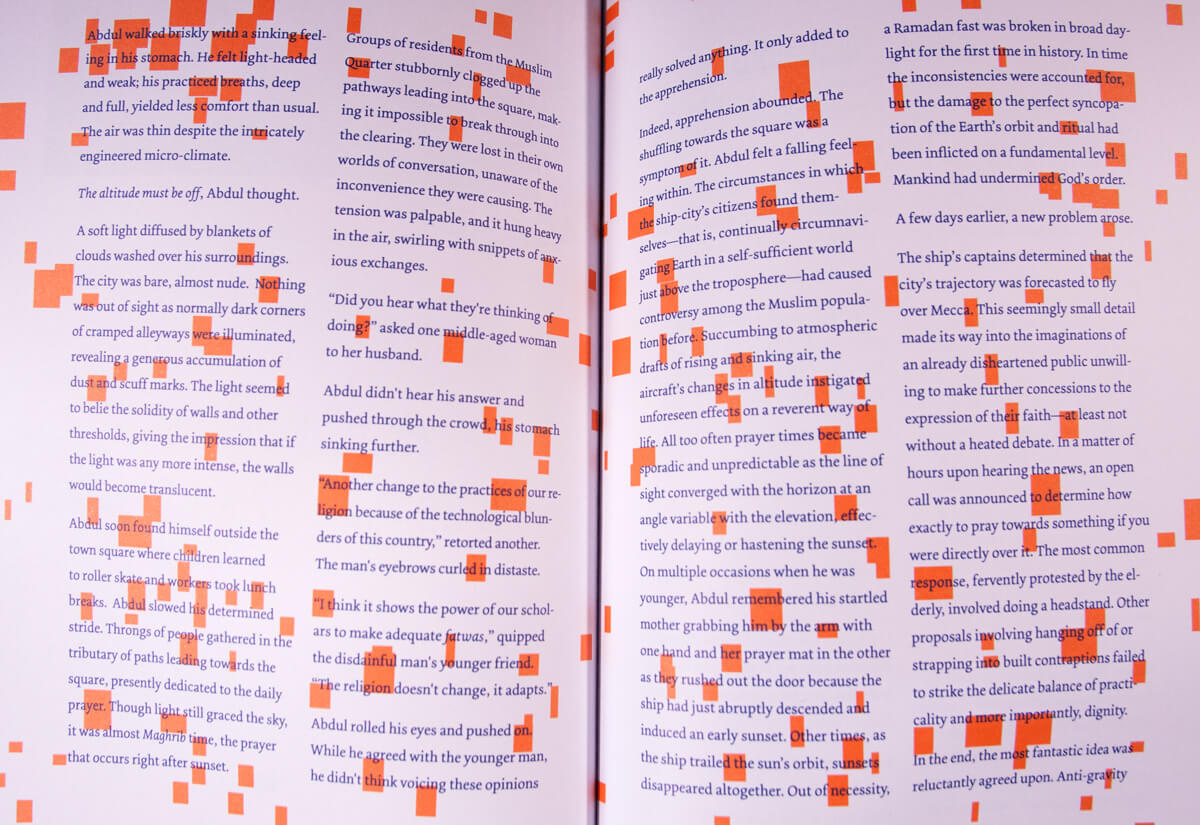 Abdul walked briskly with a sinking feel-
ing in his stomach. He felt light-headed
and weak; his practiced breaths, deep
and full, yielded less comfort than usual.
The air was thin despite the intricately
engineered micro-climate.
The altitude must be off, Abdul thought.
A soft light diffused by blankets of
clouds washed over his surroundings.
The city was bare, almost nude. Nothing
was out of sight as normally dark corners
of cramped alleyways were illuminated,
revealing a generous accumulation of
dust and scuff marks. The light seemed
to belie the solidity of walls and other
thresholds, giving the impression that if
the light was any more intense, the walls
would become translucent.
Abdul soon found himself outside the
town square where children learned
to roller skate and workers took lunch
breaks. Abdul slowed his determined
stride. Throngs of people gathered in the
tributary of paths leading towards the
square, presently dedicated to the daily
prayer. Though light still graced the sky,
it was almost Maghrib time, the prayer
that occurs right after sunset.
Groups of residents from the Muslim
Quarter stubbornly clogged up the
pathways leading into the square, mak-
ing it impossible to break through into
the clearing. They were lost in their own
worlds of conversation, unaware of the
inconvenience they were causing. The
tension was palpable, and it hung heavy
in the air, swirling with snippets of anx-
ious exchanges.
“Did you hear what they're thinking of
doing?” asked one middle-aged woman
to her husband.
Abdul didn't hear his answer and
pushed through the crowd, his stomach
sinking further.
“Another change to the practices of our re-
ligion because of the technological blun-
ders of this country,” retorted another.
The man's eyebrows curled in distaste.
“I think it shows the power of our schol-
ars to make adequate fatwas,” quipped
the disdainful man's younger friend.
“The religion doesn't change, it adapts.”
Abdul rolled his eyes and pushed on.
While he agreed with the younger man,
he didn't think voicing these opinions
really solved anything. It only added to
the apprehension.
Indeed, apprehension abounded. The
shuffling towards the square was a
symptom of it. Abdul felt a falling feel-
ing within. The circumstances in which
the ship-city's citizens found them-
selves—that is, continually circumnavi-
gating Earth in a self-sufficient world
just above the troposphere—had caused
controversy among the Muslim popula-
tion before. Succumbing to atmospheric
drafts of rising and sinking air, the
aircraft's changes in altitude instigated
unforeseen effects on a reverent way of
life. All too often prayer times became
sporadic and unpredictable as the line of
sight converged with the horizon at an
angle variable with the elevation, effec-
tively delaying or hastening the sunset.
On multiple occasions when he was
younger, Abdul remembered his startled
mother grabbing him by the arm with
one hand and her prayer mat in the other
as they rushed out the door because the
ship had just abruptly descended and
induced an early sunset. Other times, as
the ship trailed the sun's orbit, sunsets
disappeared altogether. Out of necessity,
a Ramadan fast was broken in broad day-
light for the first time in history. In time
the inconsistencies were accounted for,
but the damage to the perfect syncopa-
tion of the Earth's orbit and ritual had
been inflicted on a fundamental level.
Mankind had undermined God's order.
A few days earlier, a new problem arose.
The ship's captains determined that the
city's trajectory was forecasted to fly
over Mecca. This seemingly small detail
made its way into the imaginations of
an already disheartened public unwill-
ing to make further concessions to the
expression of their faith—at least not
without a heated debate. In a matter of
hours upon hearing the news, an open
call was announced to determine how
exactly to pray towards something if you
were directly over it. The most common
response, fervently protested by the el-
derly, involved doing a headstand. Other
proposals involving hanging off of or
strapping into built contraptions failed
to strike the delicate balance of practi-
cality and more importantly, dignity.
In the end, the most fantastic idea was
reluctantly agreed upon. Anti-gravity